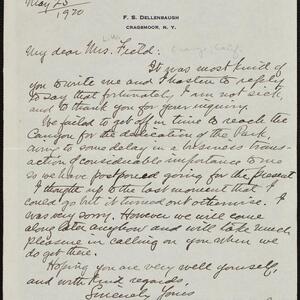 May 25
1920
F. S. DELLENBAUGH
CRAGSMOOR, N. Y.
My dear Mrs. Field:
It was most kind of
you to write me and I hasten to reply
to say that fortunately I am not sick,
and to thank you for your inquiry.
We failed to get off in time to reach the
Canyon for the dedication of the Park,
owing to some delay in a business trans-
action of considerable importance to me
so we have postponed going for the present
I thought up to the last moment that I
could go but it turned out otherwise. I
was very sorry. However we will come
along later anyhow and will take much
pleasure in calling on you when we
do get there.
Hoping you are very well yourself,
and with kind regards,
Sincerely Yours